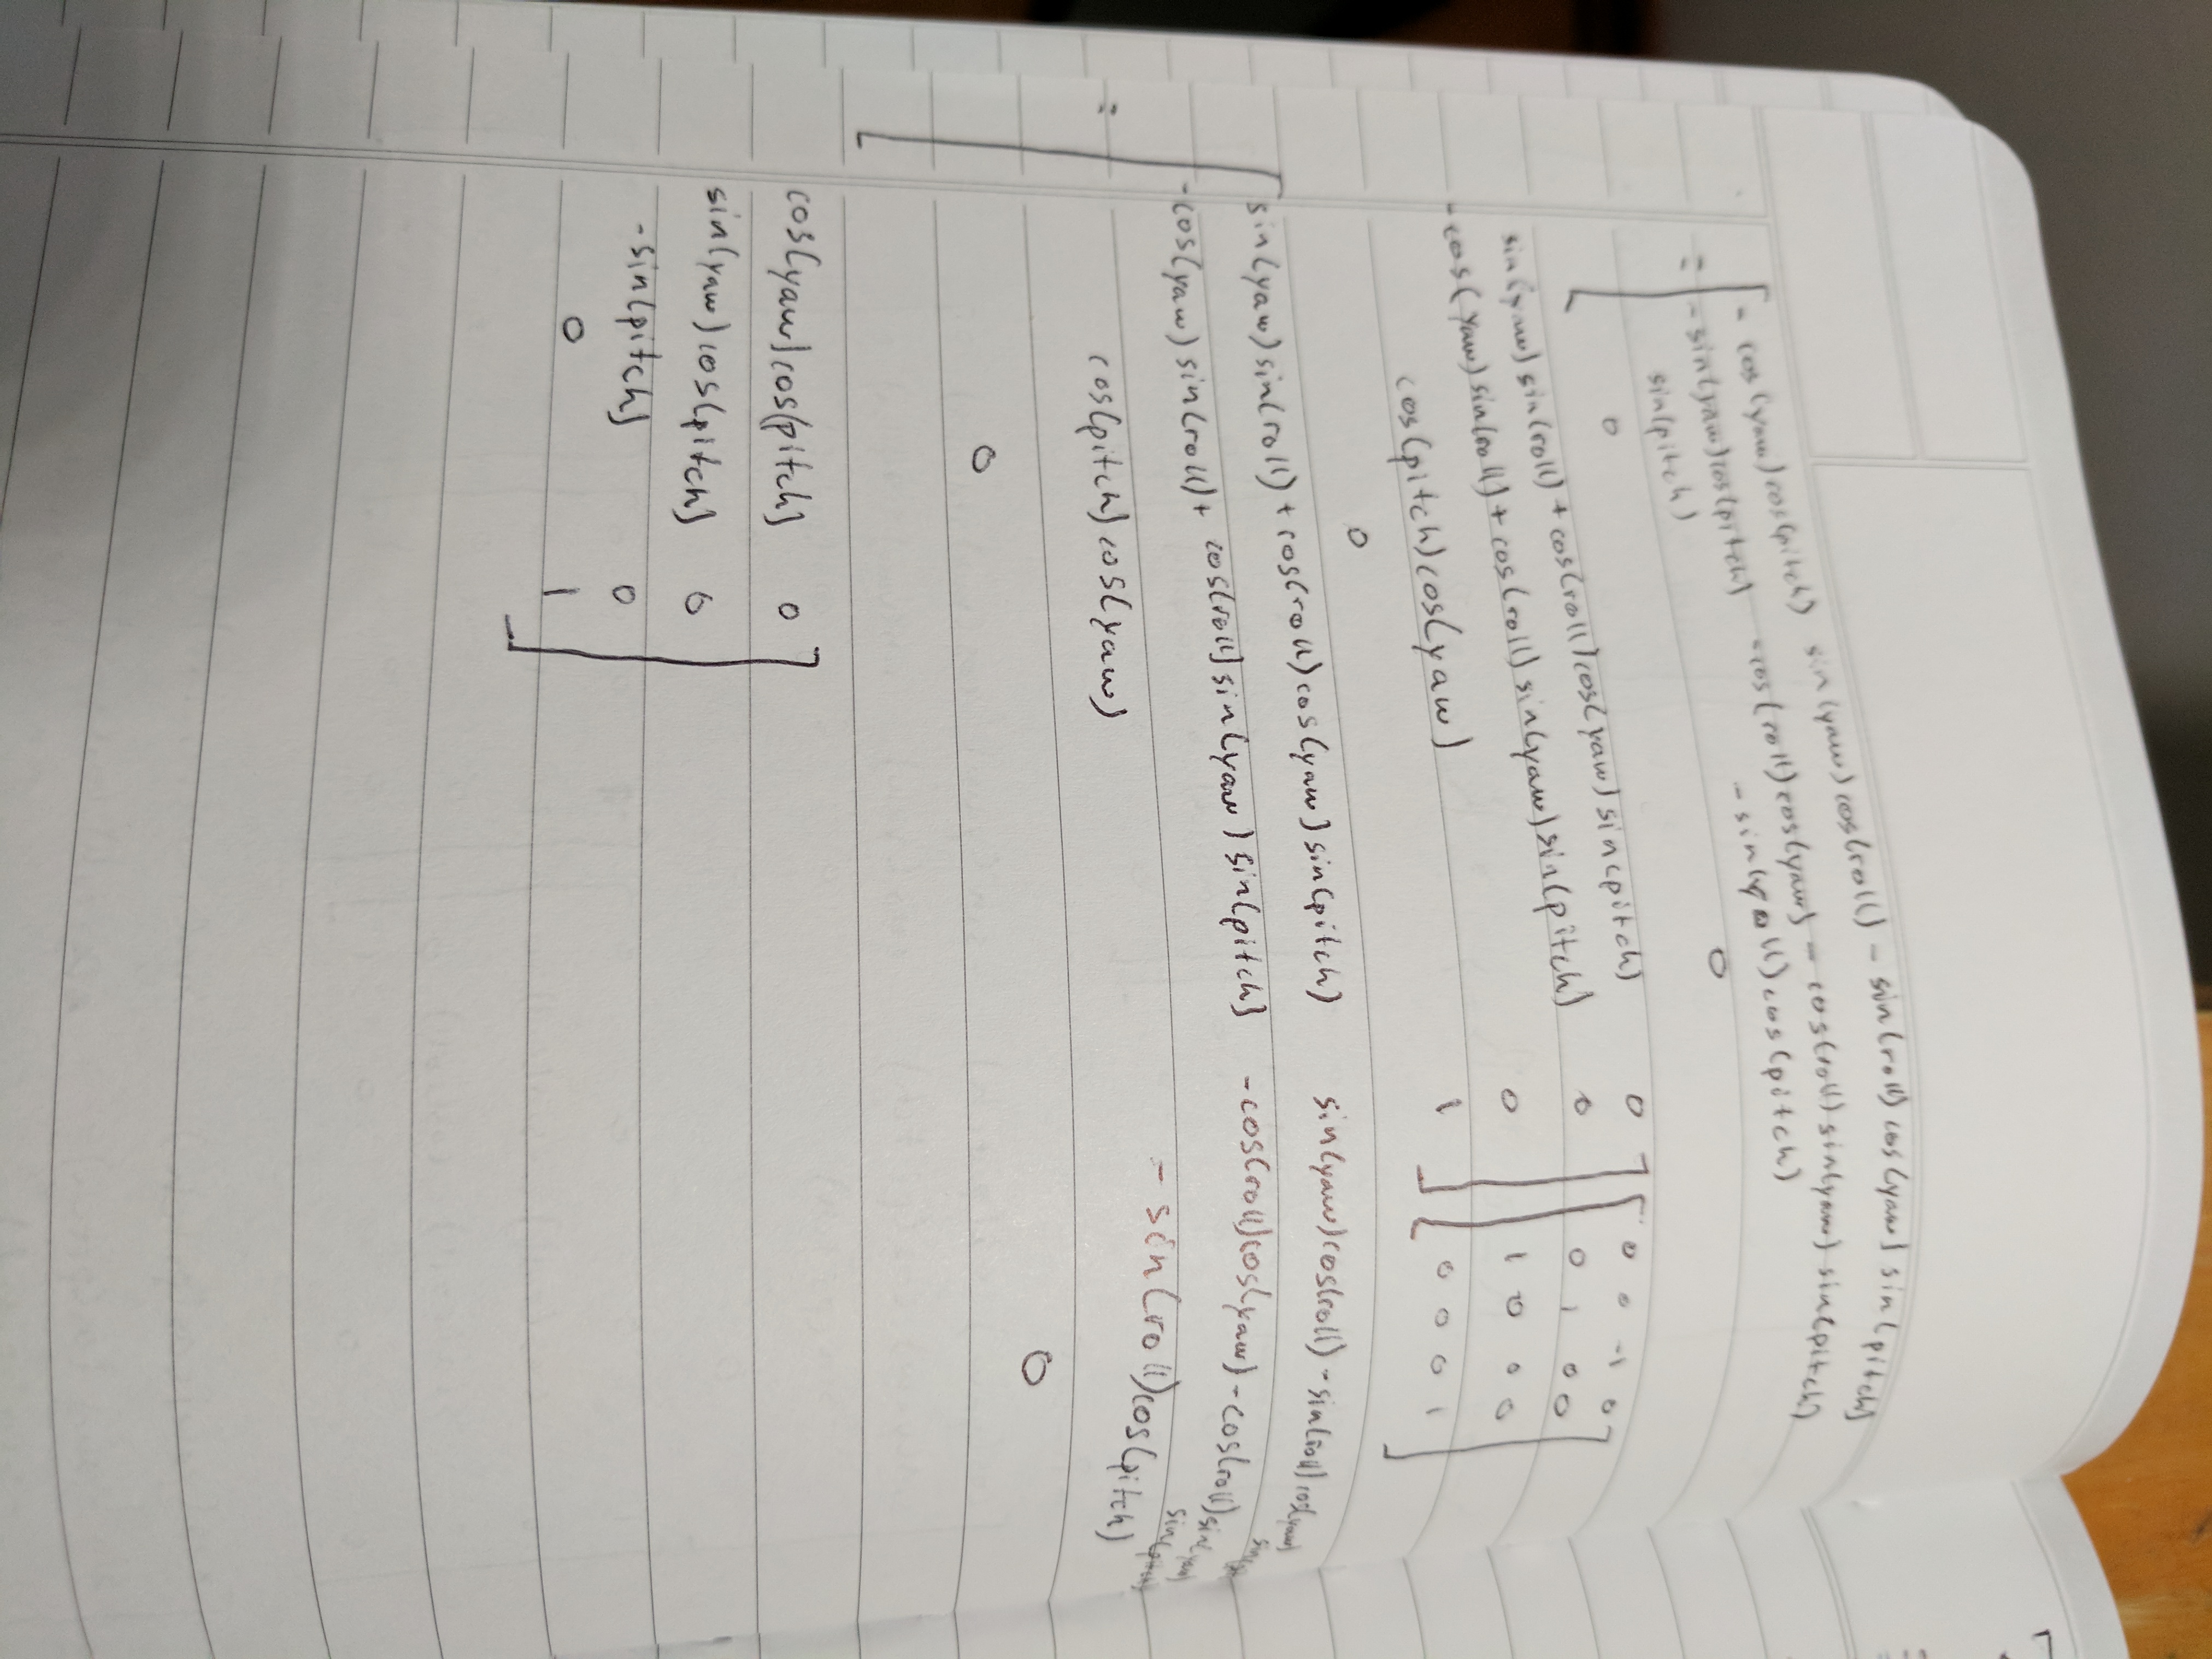 = [ - cos(yaw)cos(pitch) sin(yaw)cos(roll) - sin(roll)cos(yaw)sin(pitch)
- sin(yaw)cos(pitch) -cos(roll)cos(yaw) - cos(roll)sin(yaw)sin(pitch)
sin(pitch) - sin(roll)cos(pitch)
0 0
sin(yaw)sin(roll) + cos(roll)cos(yaw)sin(pitch) 0 ] [ 0 0 -1 0 ]
- cos(yaw)sin(roll) + cos(roll)sin(yaw)sin(pitch) 0 0 1 0 0
cos(pitch)cos(yaw) 0 1 0 0 0
0 1 0 0 0 1
= [ sin(yaw)sin(roll) + cos(roll)cos(yaw)sin(pitch) sin(yaw)cos(roll) - sin(roll)cos(yaw)
-cos(yaw)sin(roll) + cos(roll)sin(yaw)sin(pitch) -cos(roll)cos(yaw) - cos(roll)sin(yaw)
sin(pitch)
cos(pitch)cos(yaw) - sin(roll)cos(pitch)
0 0
cos(yaw)cos(pitch) 0 ]
sin(yaw)cos(pitch) 0
-sin(pitch) 0
0 1